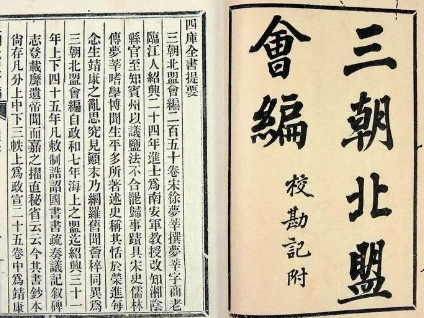 三朝北盟
會編
校勘記附
四庫全書提要
三朝北盟會編二百五十卷宋徐夢莘撰夢莘字商老
臨江人紹興二十四年進士爲南安軍教授改知湘陰
縣官至知賓州以議鹽法不合罷歸事蹟具宋史儒林
傳夢莘嗜學博聞生平多所著述史稱其恬於榮進每
念生靖康之亂思究見顛末乃網羅舊聞會稡同異爲
三朝北盟會編自政和七年海上之盟迄紹興三十一
年上下四十五年凡敕制誥詔國書書疏奏議記叙碑
志登載靡遺帝聞而嘉之擢直秘省云云今其書鈔本
尚存凡分上中下三帙上爲政宣二十五卷中爲靖康